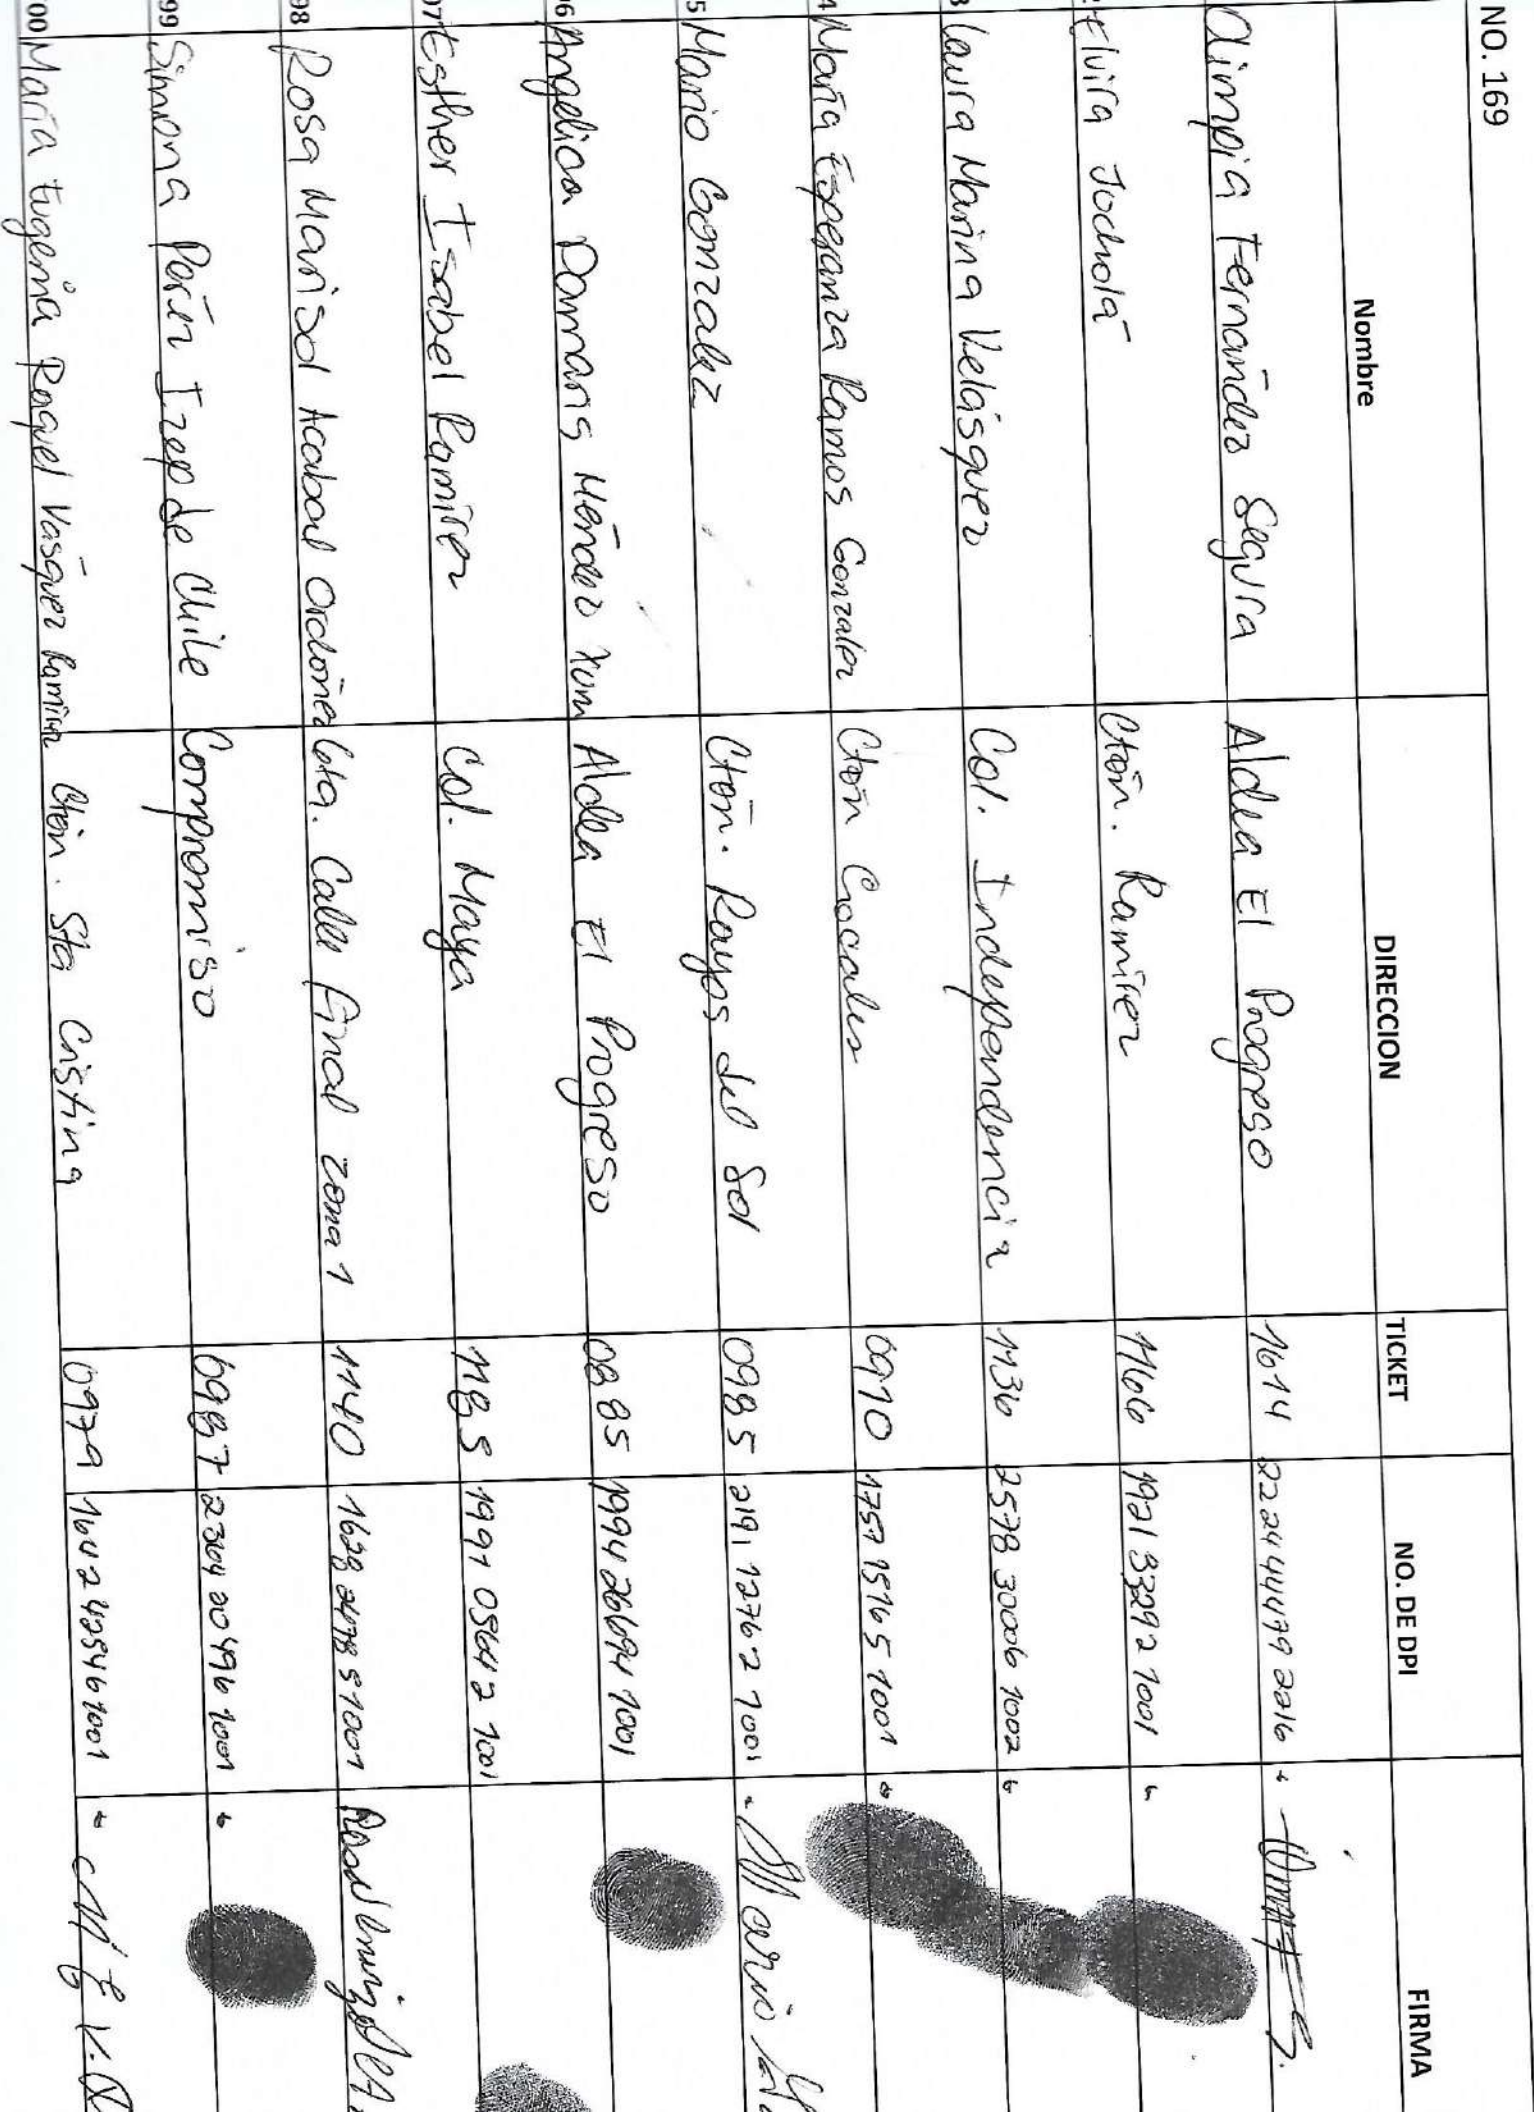 NO. 169
Nombre DIRECCION TICKET NO. DE DPI FIRMA
Olimpia Fernández Segura Aldea El Progreso 1614 2224 44479 2216
Elvira Jocholá Ctón. Ramírez 1166 1921 33292 1001
3 Laura Marina Velásquez Col. Independencia 1136 2578 30006 1002
4 María Esperanza Ramos Gonzalez Ctón Cocales 0910 1757 15165 1001
5 Mario Gonzalez Ctón. Rayos del Sol 0985 2191 12762 1001 Mario
96 Angelica Damaris Méndez Xum Aldea El Progreso 0885 1994 26694 1001
97 Esther Isabel Ramírez Col. Maya 1185 1991 05642 1001
98 Rosa Marisol Acabal Ordoñez 6ta. Calle Final zona 1 1140 1628 24785 1001
99 Simona Perén Izep de Chile Compromiso 0987 2304 20496 1001
00 María Eugenia Raquel Vasquez Ramírez Ctón. Sta Cristina 0979 1642 42546 1001